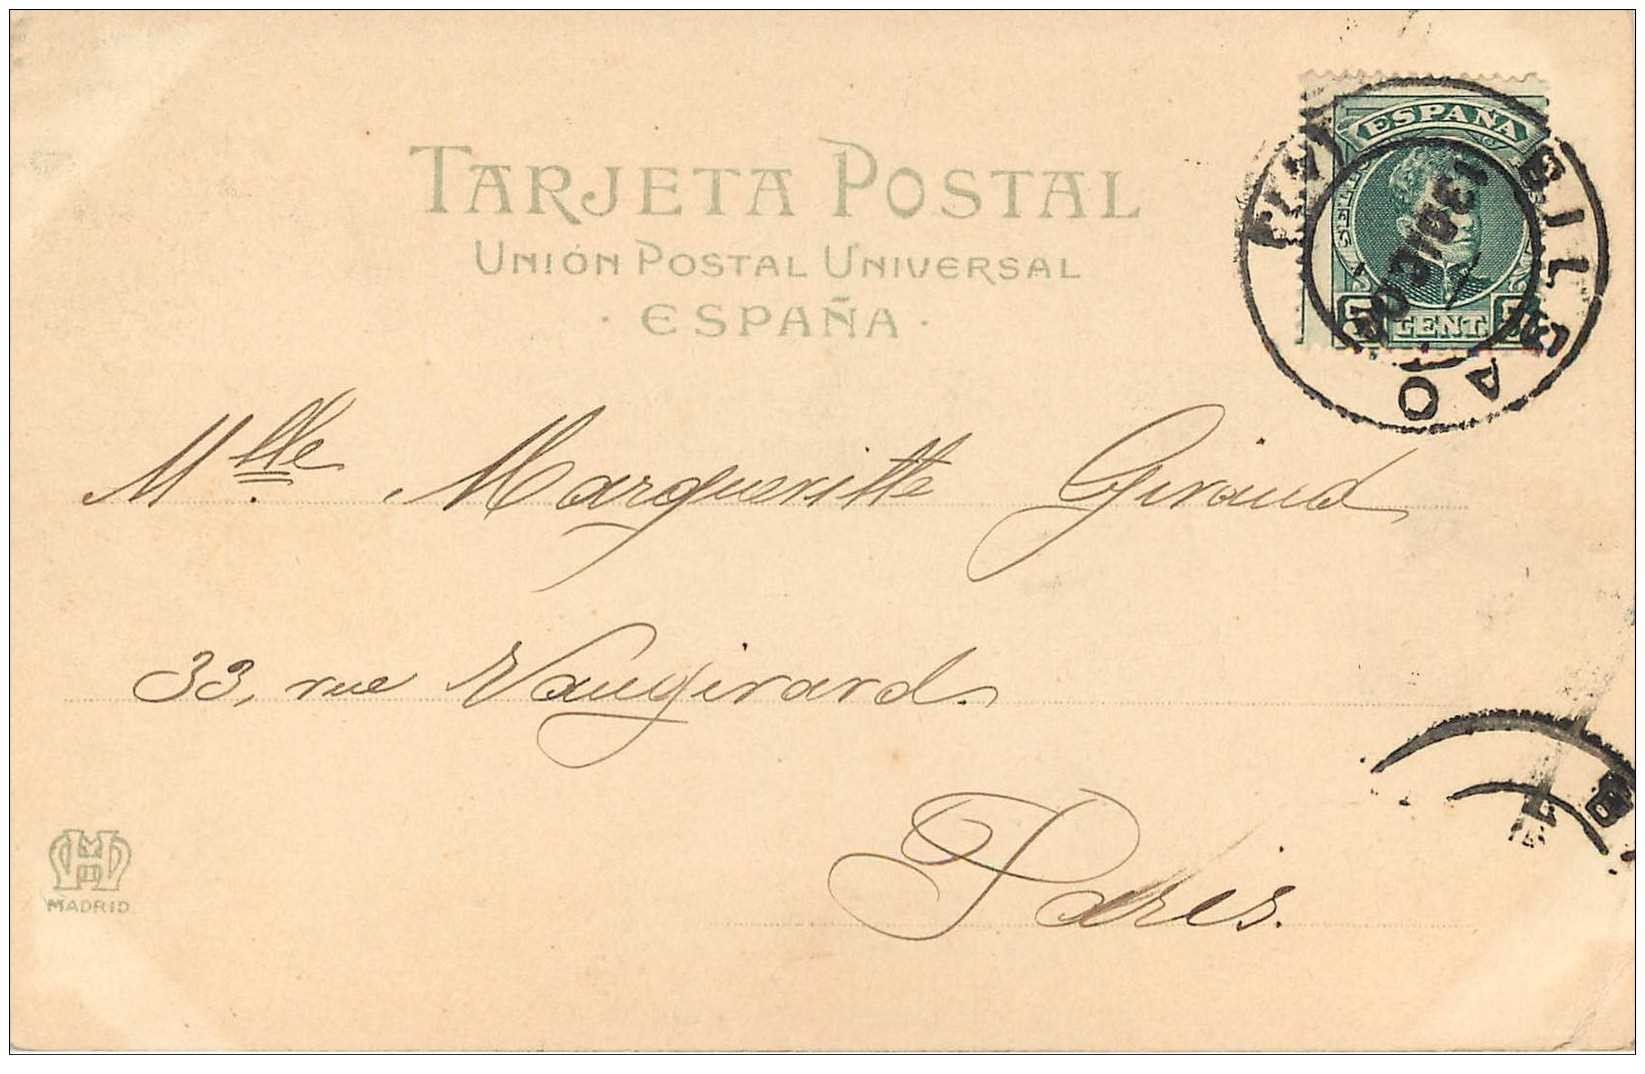 TARJETA POSTAL
UNIÓN POSTAL UNIVERSAL
· ESPAÑA ·
ESPAÑA
CENT.
BILBAO
13 DIC
Mlle. Margueritte Giraud
33, rue Vaugirard.
Paris.
MADRID